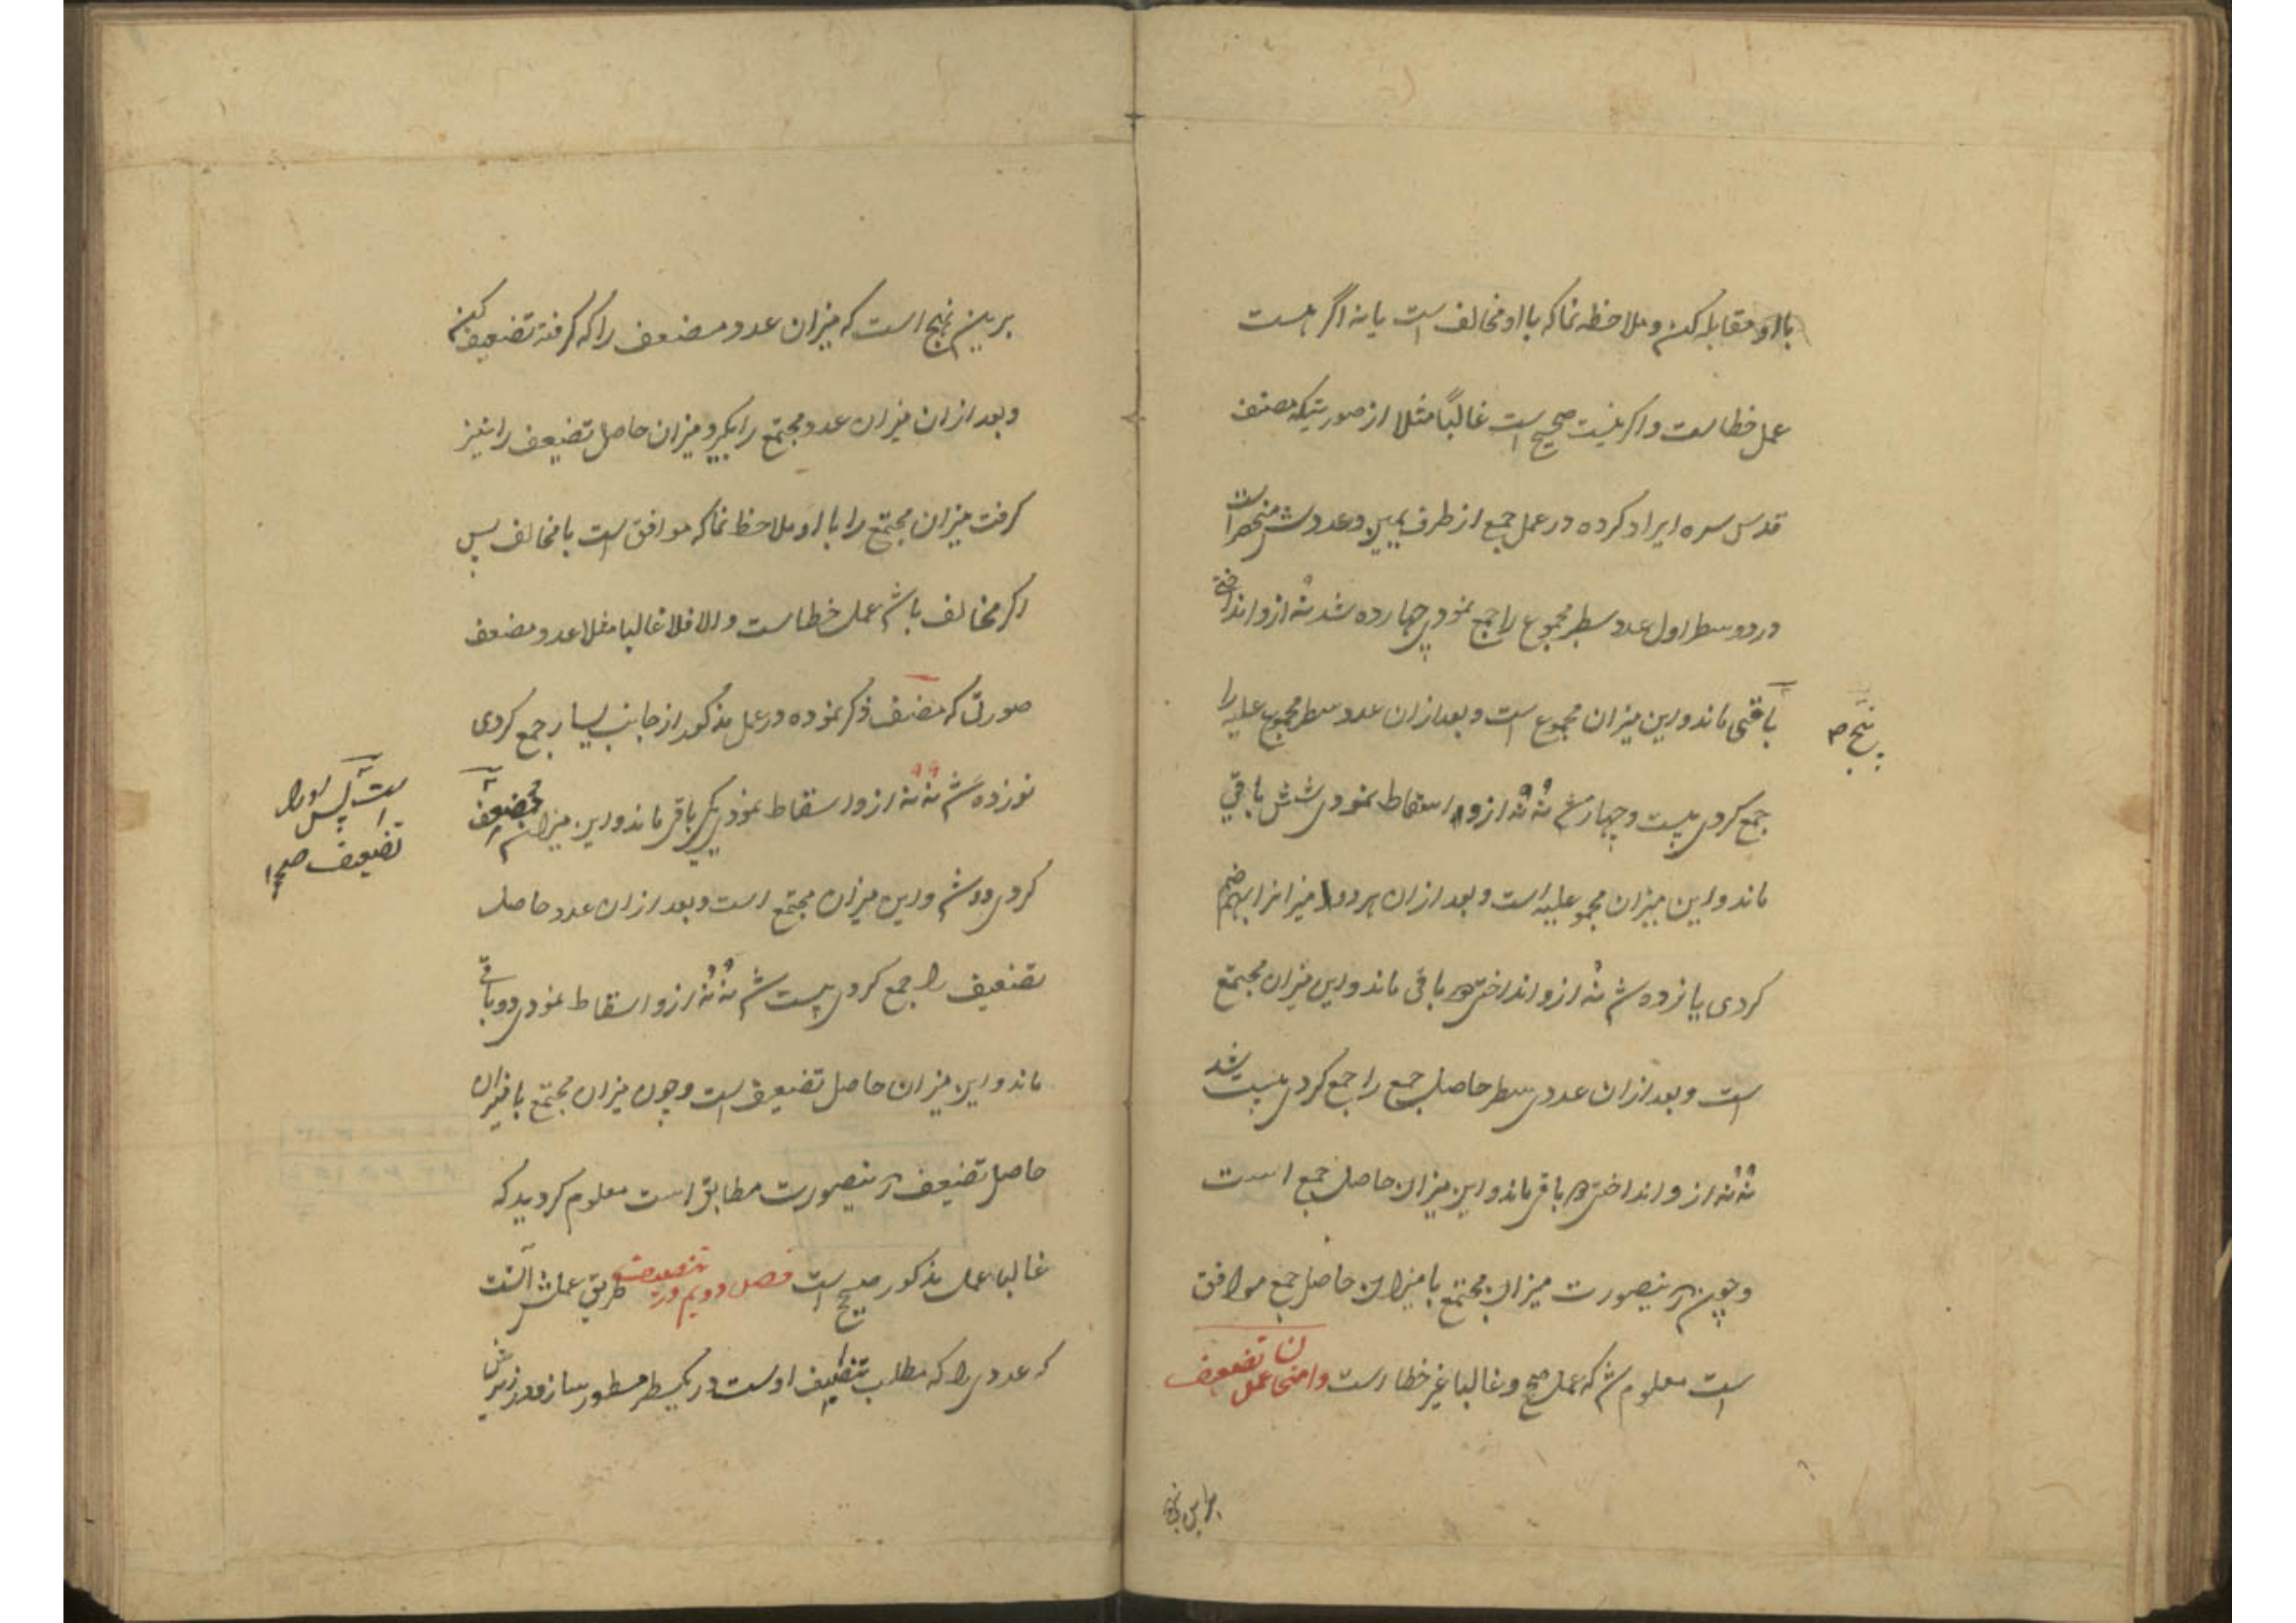 با او مقابله کن و ملاحظه نما که با او مخالف است یا نه اگر هست
عمل خطاست و اکر نیست صحیح است غالباً مثلا از صورتیکه مصنف
قدس سره ایراد کرده در عمل جمع از طرف یمین و عددش منحصر است
در دو سطر اول عدد سطر مجموع را جمع نمودی چهارده شد نُه ازو انداختی
باقی ماند و این میزان مجموع است و بعد ازان عدد سطر مجموع علیه را
پنج صح
جمع کردی بیست و چهار شد نُه نُه ازو اسقاط نمودی شش باقی
ماند و این میزان مجموع علیه است و بعد ازان هر دو میزانرا بهم ضم
کردی یازده شد نُه ازو انداختی باقی ماند و این میزان مجتمع
است و بعد ازان عددی سطر حاصل جمع را جمع کردی بیست شد
نُه نُه ازو انداختی باقی ماند و این میزان حاصل جمع است
و چون درینصورت میزان مجتمع با میزان حاصل جمع موافق
است معلوم شد که عمل صحیح و غالبا غیر خطا است وامتحان عمل تضعیف
براین نهج
برین نهج است که میزان عدد مضعف را که کرفته تضعیف کن
و بعد ازان میزان عدد مجتمع را بکیر و میزان حاصل تضعیف را نیز
کرفت میزان مجتمع را با او ملاحظ نما که موافق است یا مخالف پس
اکر مخالف باشد عمل خطاست والا فلا غالبا مثلا عدد مضعف
صورتی که مصنف ذکر نموده در عمل مذکور از جانب یسار جمع کردی
نوزده شد نُه نُه ازو اسقاط نمودی یکی باقی ماند و این میزان مضعف
است پس او را
تضعیف صح
کردی دو شد و این میزان مجتمع است و بعد ازان عدد حاصل
تضعیف را جمع کردی بیست شد نُه نُه ازو اسقاط نمودی دو باقی
ماند و این میزان حاصل تضعیف است و چون میزان مجتمع با میزان
حاصل تضعیف درینصورت مطابق است معلوم کردید که
غالبا عمل مذکور صحیح است فصل دویم در تنصیف طریق عملش آنست
که عددی را که مطلب تنصیف اوست در یکسطر مسطور سازد در زیرش